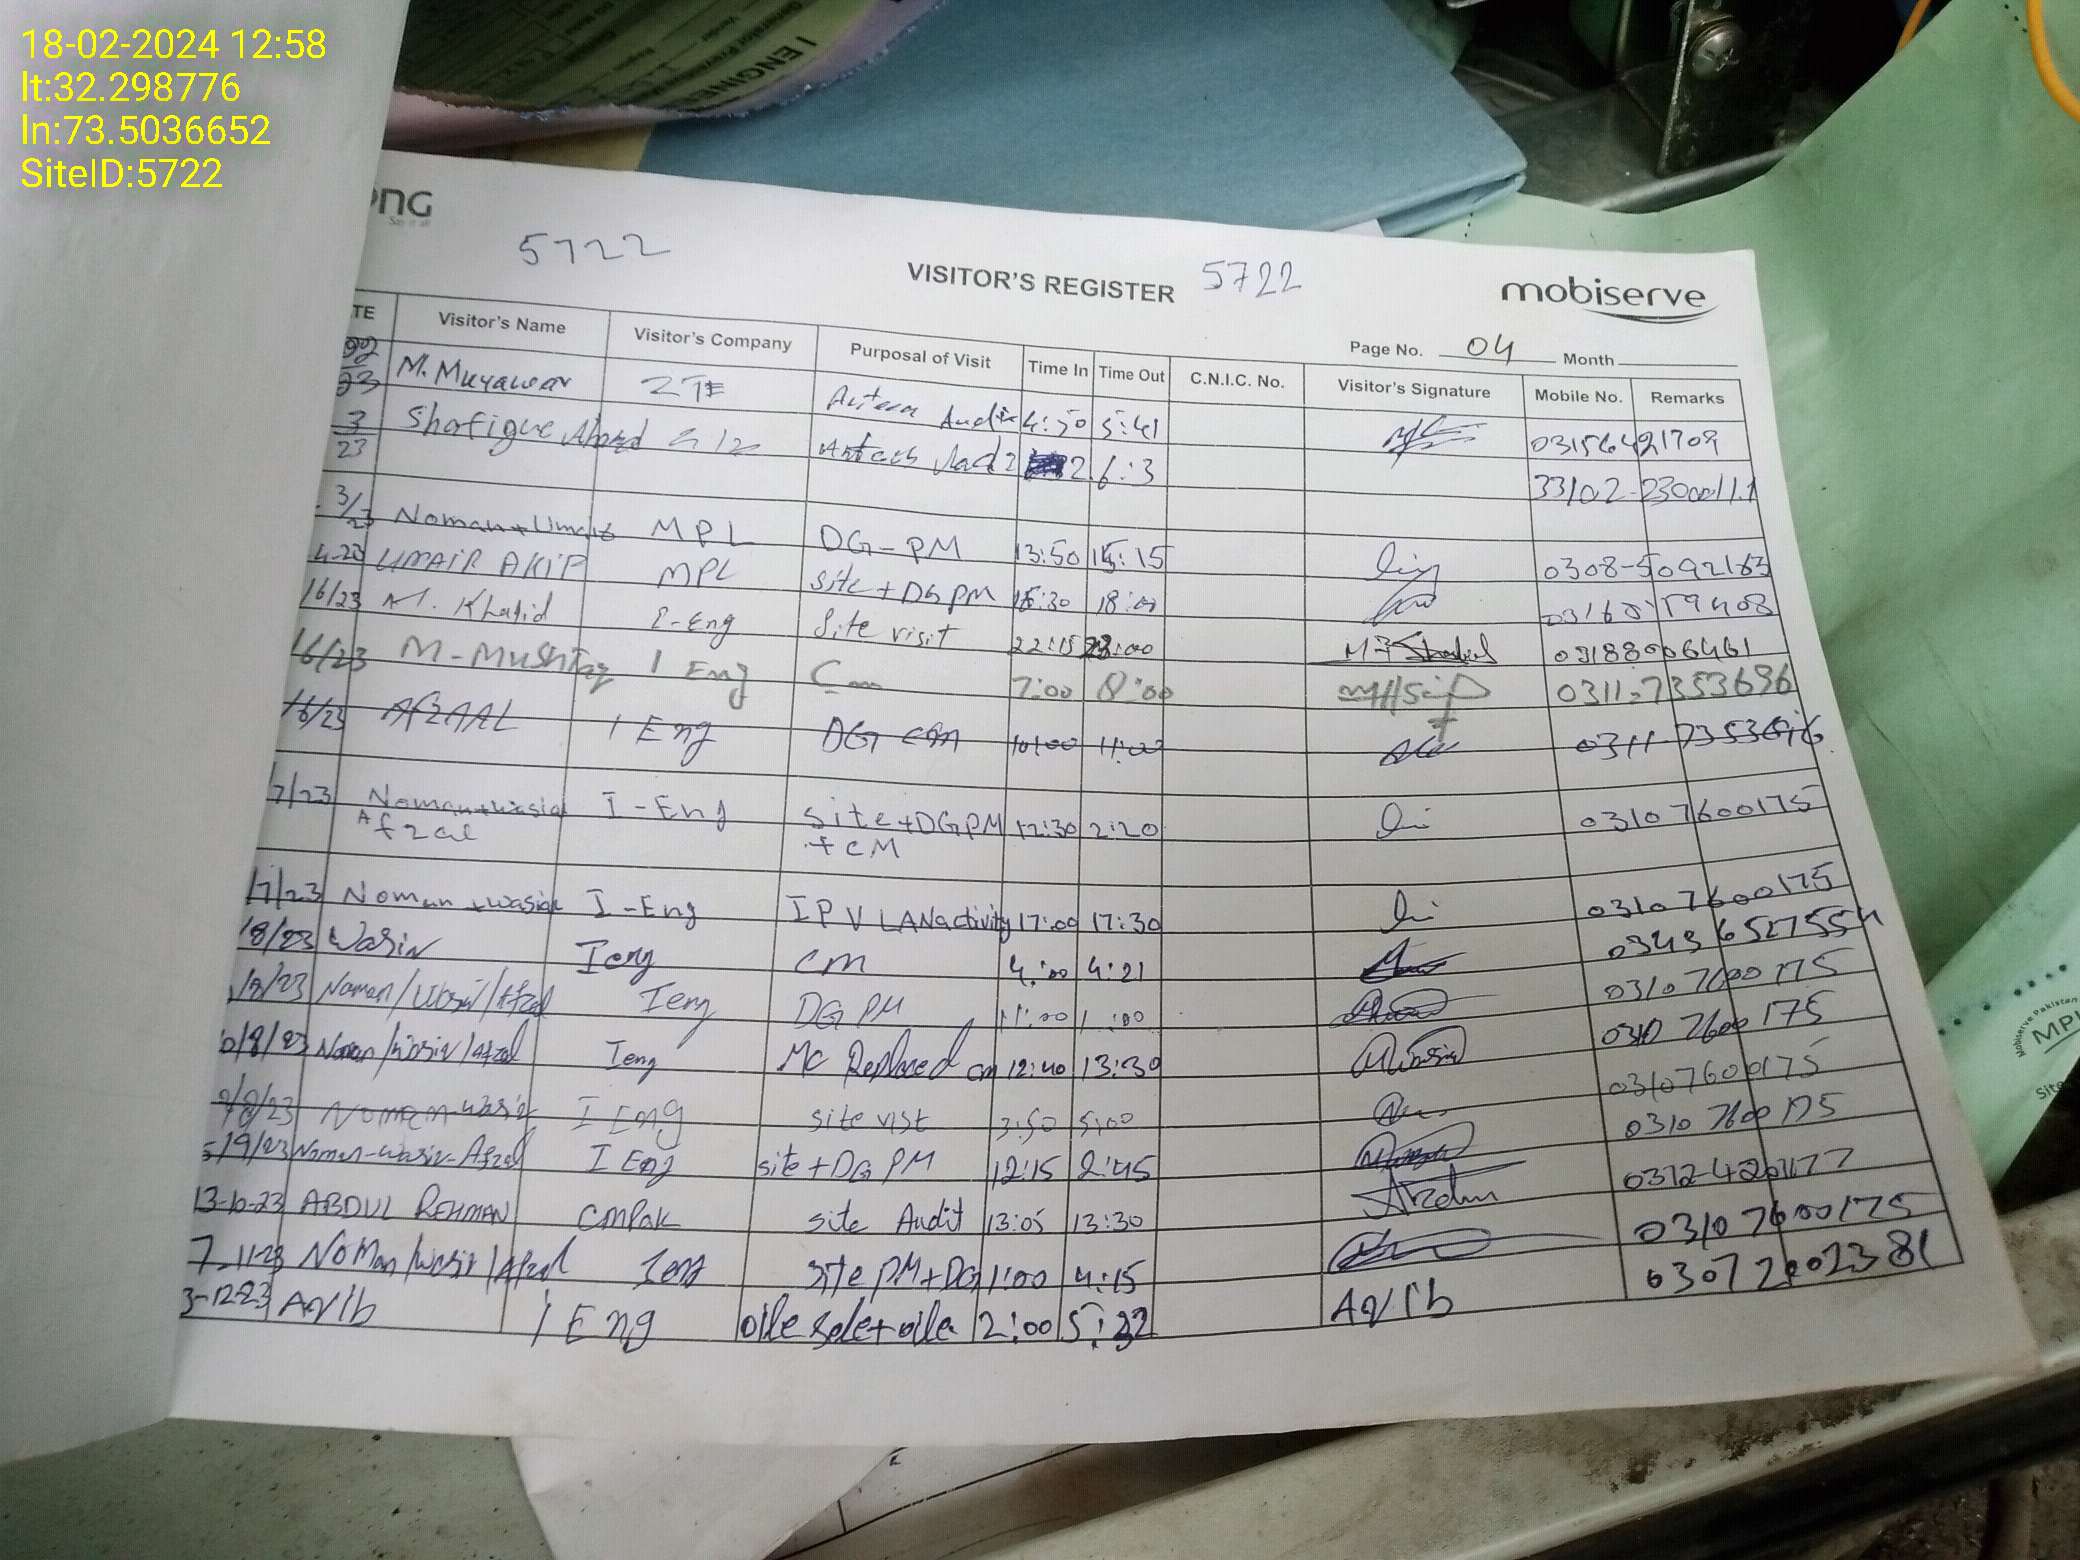 18-02-2024 12:58
lt:32.298776
ln:73.5036652
SiteID:5722
I ENGINE
ONG
Say it all
5722
VISITOR'S REGISTER 5722
mobiserve
Page No. 04 Month
TE Visitor's Name Visitor's Company Purposal of Visit Time In Time Out C.N.I.C. No. Visitor's Signature Mobile No. Remarks
23 M. Muyawar ZTE Audit 4:50 5:41 03156421709
3/23 Shafique Ahmad 2 6:3 33102-
3/23 Noman+Umair MPL DG-PM 13:50 15:15 0308-5092163
4-23 UMAIR AKIP MPL Site+DG PM 18:00
16/23 M. Khalid I-Eng Site visit 22:15 23:00 03188906461
16/23 M-Mushtaq I Eng Cm 7:00 8:00 0311-7353696
16/23 AFZAAL I Eng DG CM 10:00 11:00 0311-7353696
7/23 Noman+wasid I-Eng Site+DGPM 12:30 2:20 03107600175
Afzal + CM
17/23 Noman+wasid I-Eng IPV LANactivity 17:00 17:30 03107600175
18/23 Wasiv Ieng CM 4:00 4:21 03436527554
Noman/Wasif/Afzal Ieng DG PM 11:00 1:00 03107600175
0/8/23 Noman/Wasiv/Afzal Ieng MC Replaced cm 12:40 13:30 0310 7600 175
9/8/23 Noman wasiv I Eng site vist 3:50 5:00 03107600175
5/9/23 Noman-wasiv-Afzal I Eng site+DG PM 12:15 2:45 0310 7600 175
13-10-23 ABDUL REHMAN CMPak site Audit 13:05 13:30 0312-4261177
7-11-23 NoMan/wasiv/Afzal Ieng Site PM+DG 1:00 4:15 03107600175
3-12-23 Aqib I Eng 2:00 5:32 Aqib 03072002381
Mobiserve Pakistan
MPL
Site